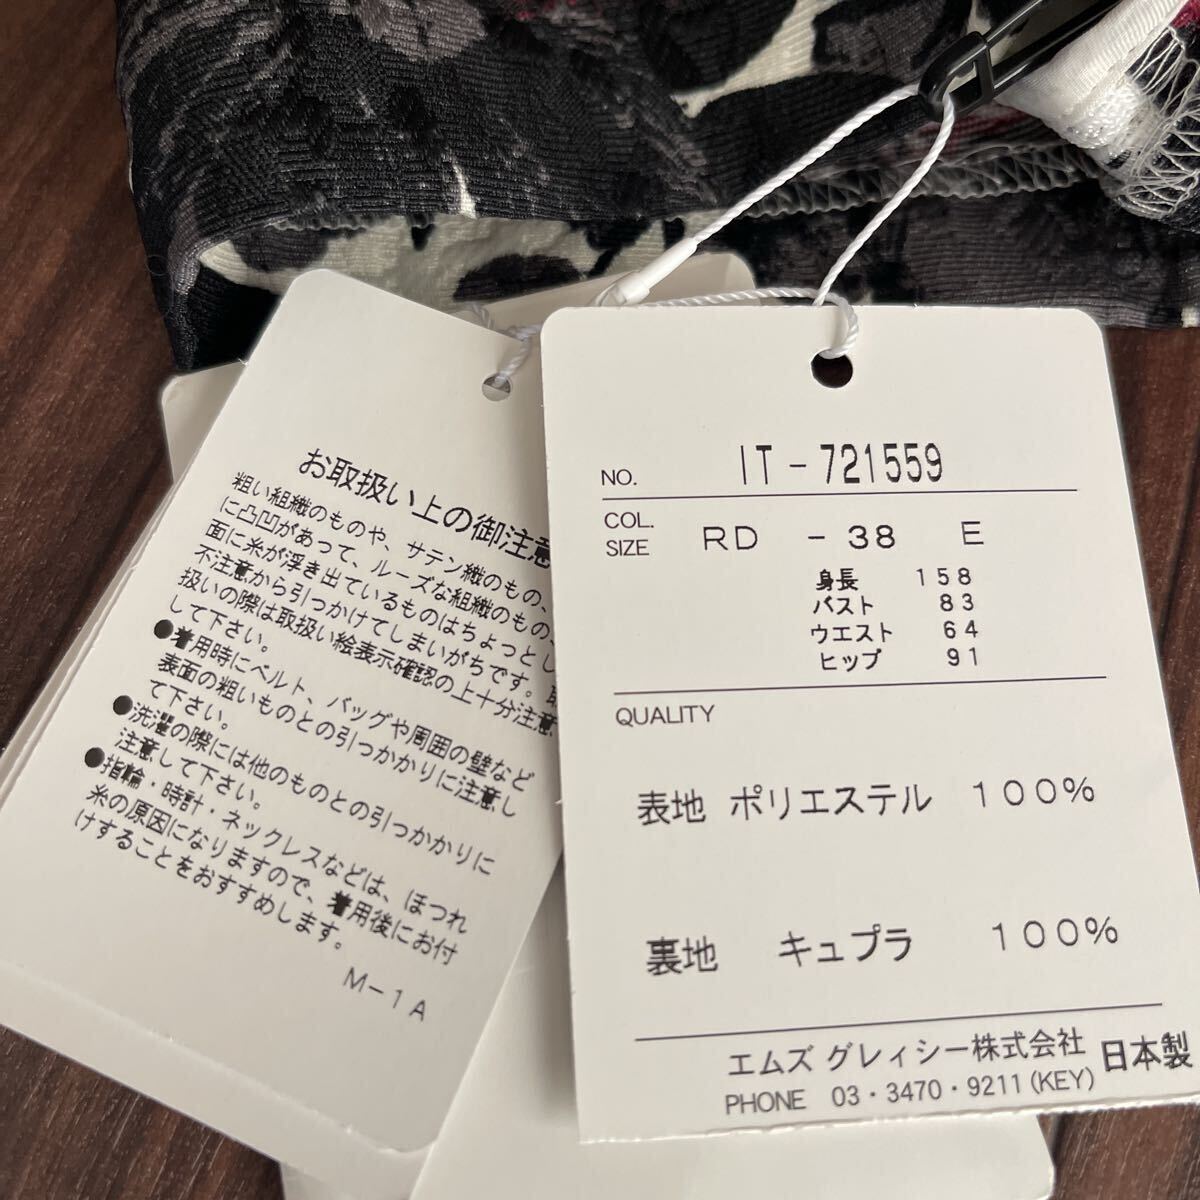 お取扱い上の御注意
粗い組織のものや、サテン織のもの、
に凸凹があって、ルーズな組織のもの、
面に糸が浮き出ているものはちょっとし
不注意から引っかけてしまいがちです。
扱いの際は取扱い絵表示確認の上十分注意
して下さい。
●着用時にベルト、バッグや周囲の壁など
表面の粗いものとの引つかかりに注意し
て下さい。
●洗濯の際には他のものとの引つかかりに
注意して下さい。
●指輪・時計・ネックレスなどは、ほつれ
糸の原因になりますので、着用後にお付
けすることをおすすめします。
M-1A
NO. IT-721559
COL. SIZE RD -38 E
身長 158
バスト 83
ウエスト 64
ヒップ 91
QUALITY
表地 ポリエステル 100%
裏地 キュプラ 100%
エムズ グレィシー株式会社 日本製
PHONE 03・3470・9211(KEY)